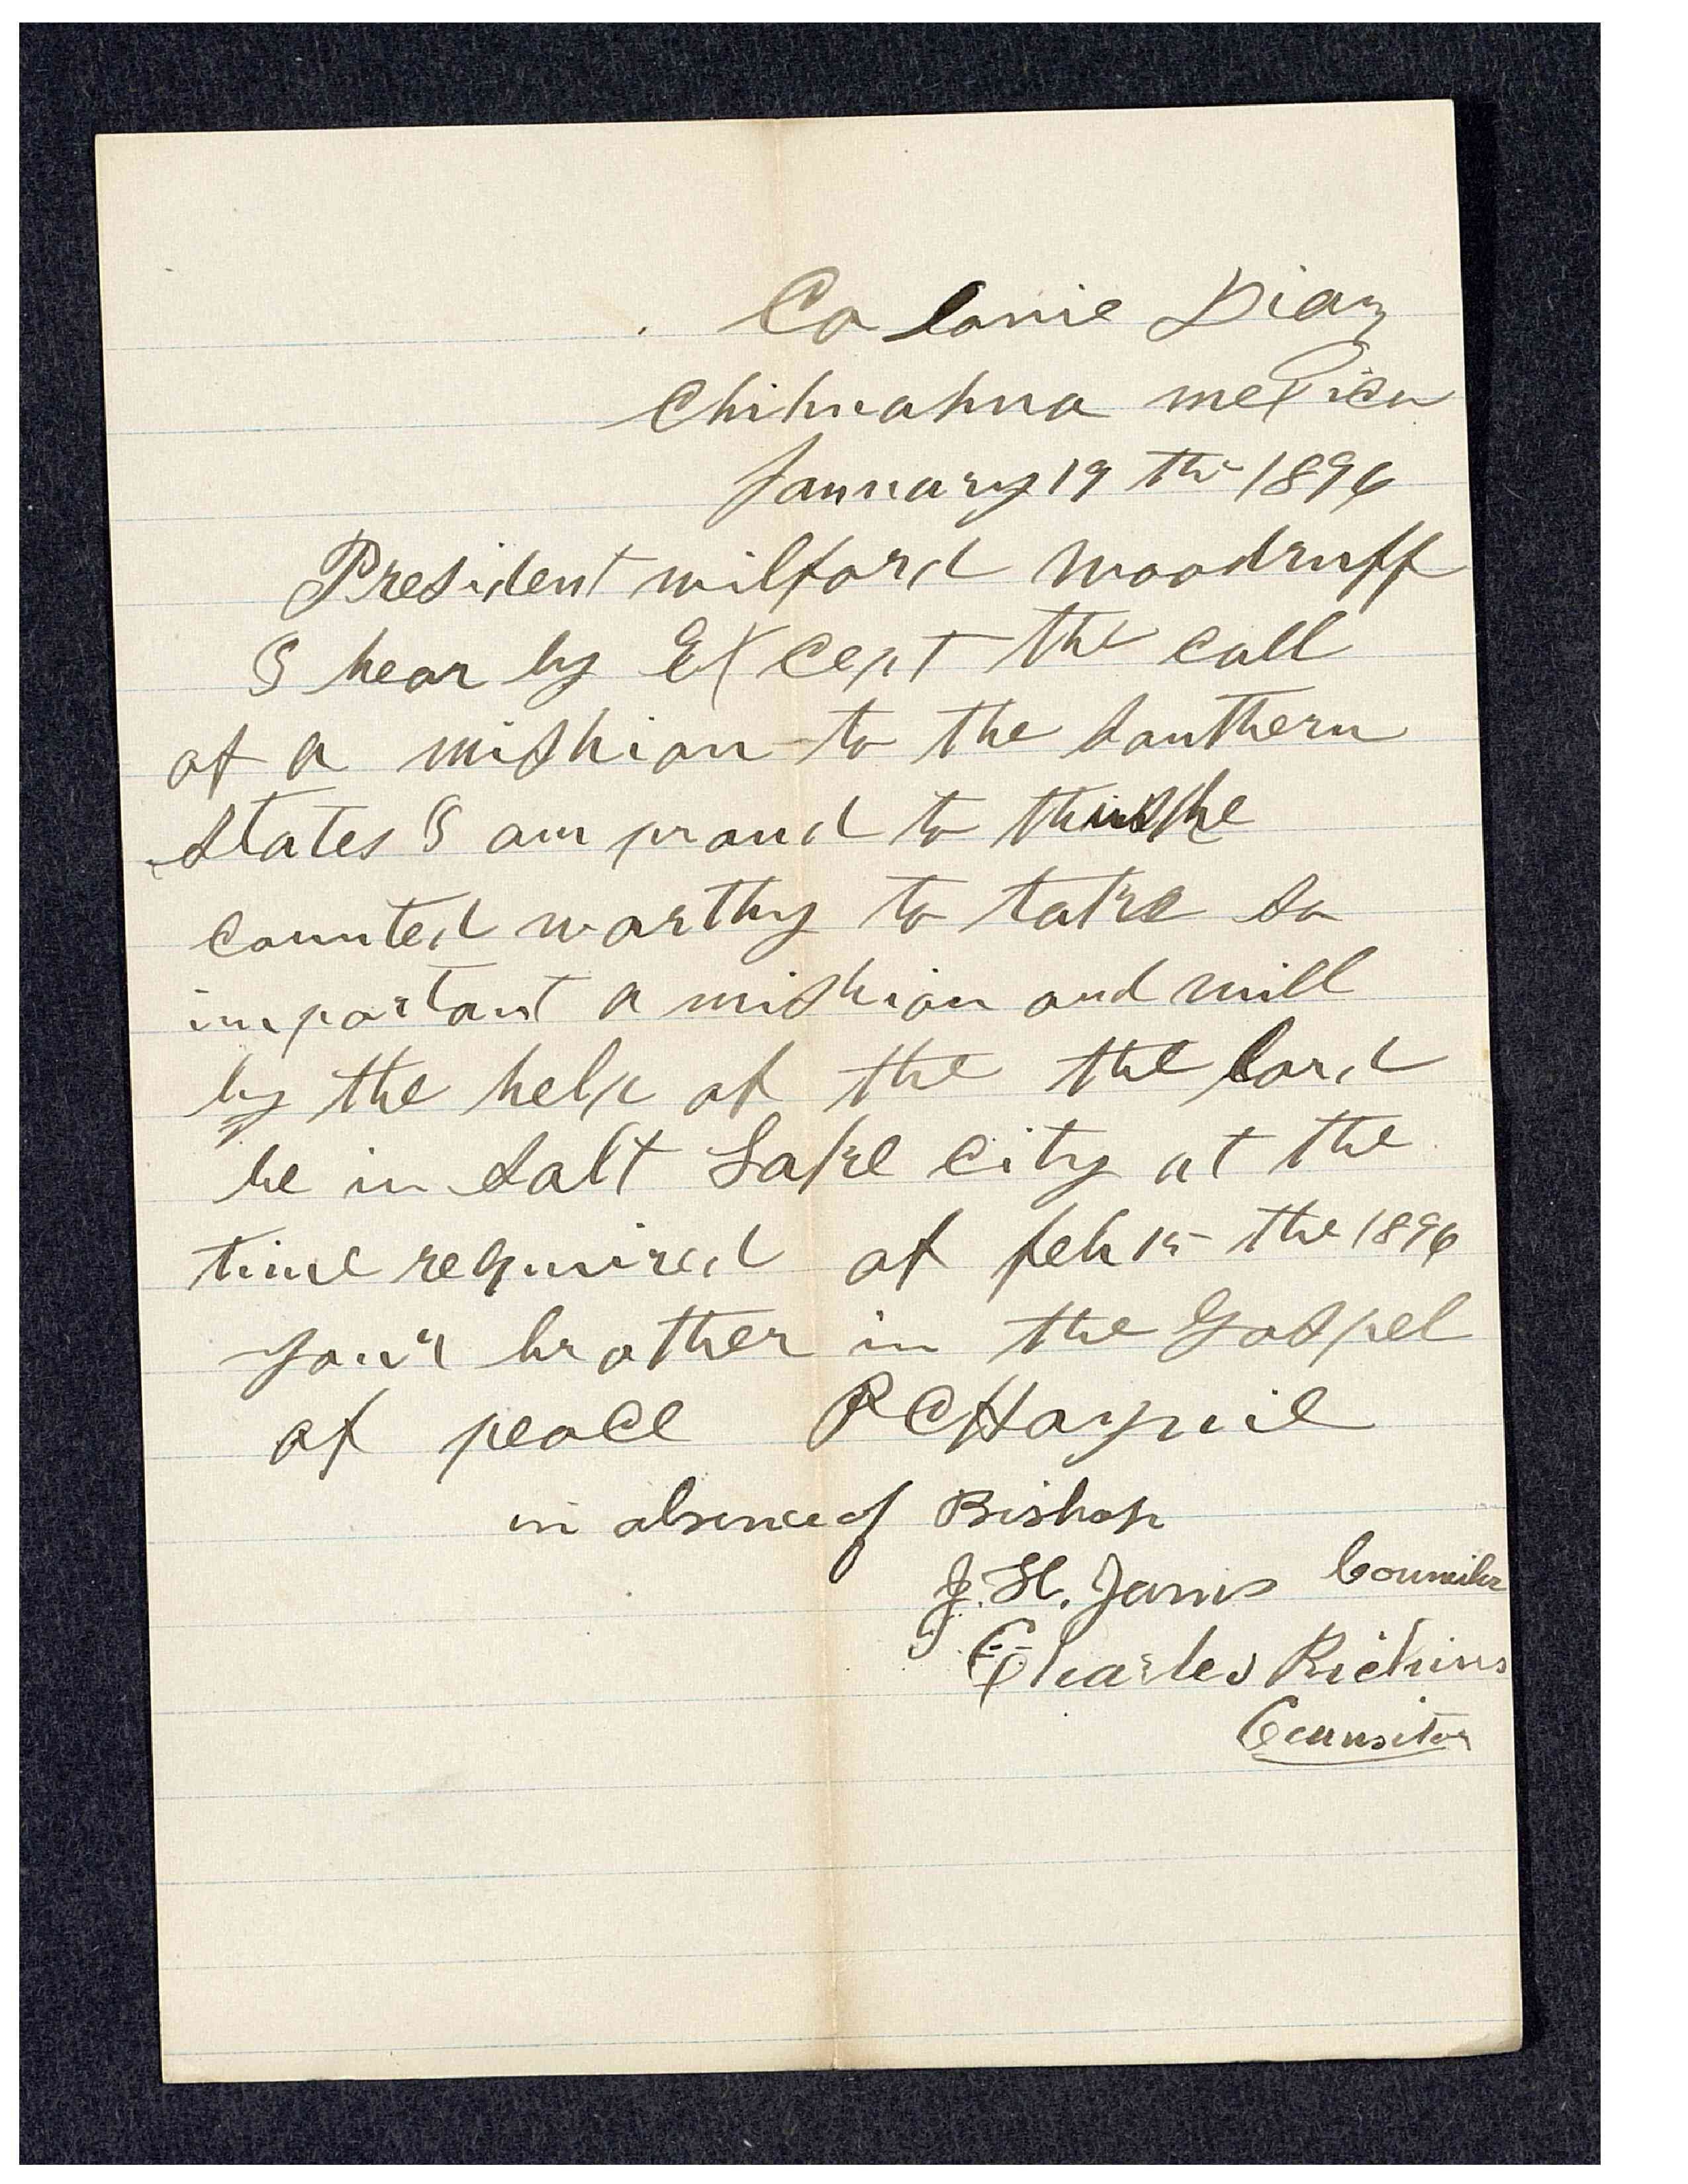 Colonie Diaz
Chihuahua mexico
January 19 th 1896
President wilford woodruff
I hear by Except the call
of a mishion to the Southern
States I am proud to thus be
counted worthy to take so
important a mishion and will
by the help of the the lord
be in Salt Lake city at the
time required of feb 15 the 1896
your brother in the Gospel
of peace R C Haynie
in absence of Bishop
J. H. James Councilor
Charles Richins
Counsitor